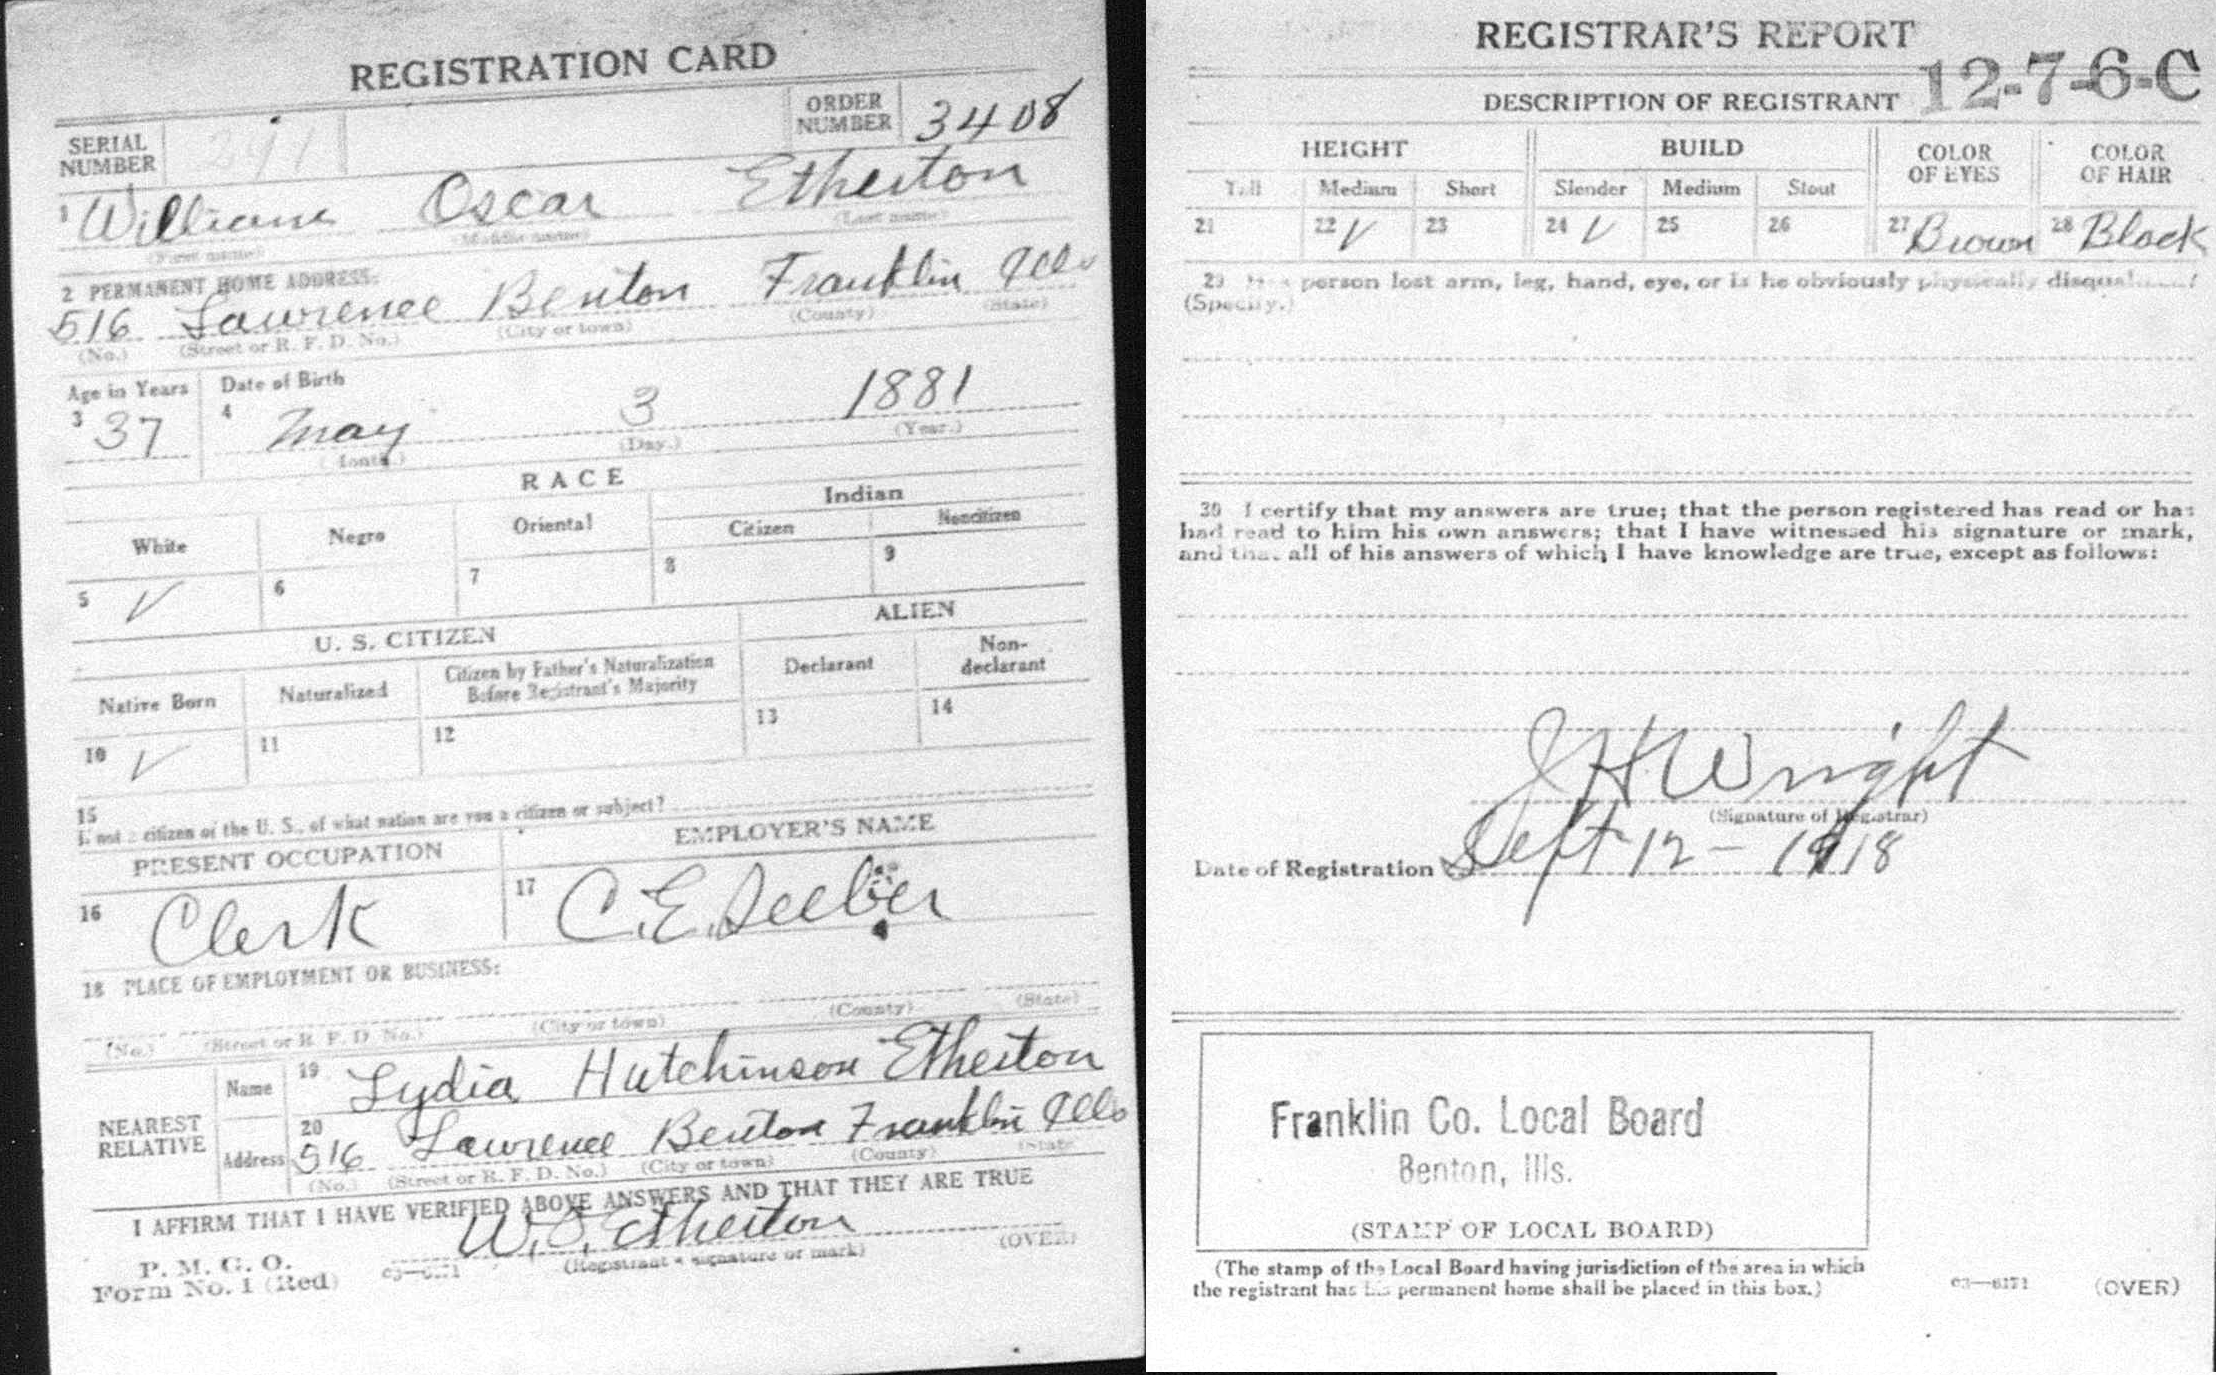 REGISTRATION CARD
SERIAL NUMBER 291 ORDER NUMBER 3408
1 William Oscar Etherton
(First name) (Middle name) (Last name)
2 PERMANENT HOME ADDRESS:
516 Lawrence Benton Franklin Ills
(No.) (Street or R. F. D. No.) (City or town) (County) (State)
Age in Years Date of Birth
3 37 4 May 3 1881
(Month.) (Day.) (Year.)
RACE
White Negro Oriental Indian
Citizen Noncitizen
5 V 6 7 8 9
U. S. CITIZEN ALIEN
Native Born Naturalized Citizen by Father's Naturalization Before Registrant's Majority Declarant Non-declarant
10 V 11 12 13 14
15
If not a citizen of the U. S., of what nation are you a citizen or subject?
PRESENT OCCUPATION EMPLOYER'S NAME
16 Clerk 17 C. E. Seeber
18 PLACE OF EMPLOYMENT OR BUSINESS:
(No.) (Street or R. F. D. No.) (City or town) (County) (State)
NEAREST RELATIVE
Name 19 Lydia Hutchinson Etherton
Address 20 516 Lawrence Benton Franklin Ills
(No.) (Street or R. F. D. No.) (City or town) (County) (State)
I AFFIRM THAT I HAVE VERIFIED ABOVE ANSWERS AND THAT THEY ARE TRUE
W. O. Etherton
P. M. G. O.
Form No. 1 (Red) (Registrant's signature or mark) (OVER)
REGISTRAR'S REPORT
12-7-6-C
DESCRIPTION OF REGISTRANT
HEIGHT BUILD COLOR OF EYES COLOR OF HAIR
Tall Medium Short Slender Medium Stout
21 22 V 23 24 V 25 26 27 Brown 28 Black
29 Has person lost arm, leg, hand, eye, or is he obviously physically disqualified?
(Specify.)
30 I certify that my answers are true; that the person registered has read or has
had read to him his own answers; that I have witnessed his signature or mark,
and that all of his answers of which I have knowledge are true, except as follows:
J H Wright
(Signature of Registrar)
Date of Registration Sept 12 - 1918
Franklin Co. Local Board
Benton, Ills.
(STAMP OF LOCAL BOARD)
(The stamp of the Local Board having jurisdiction of the area in which
the registrant has his permanent home shall be placed in this box.)
03—6171 (OVER)